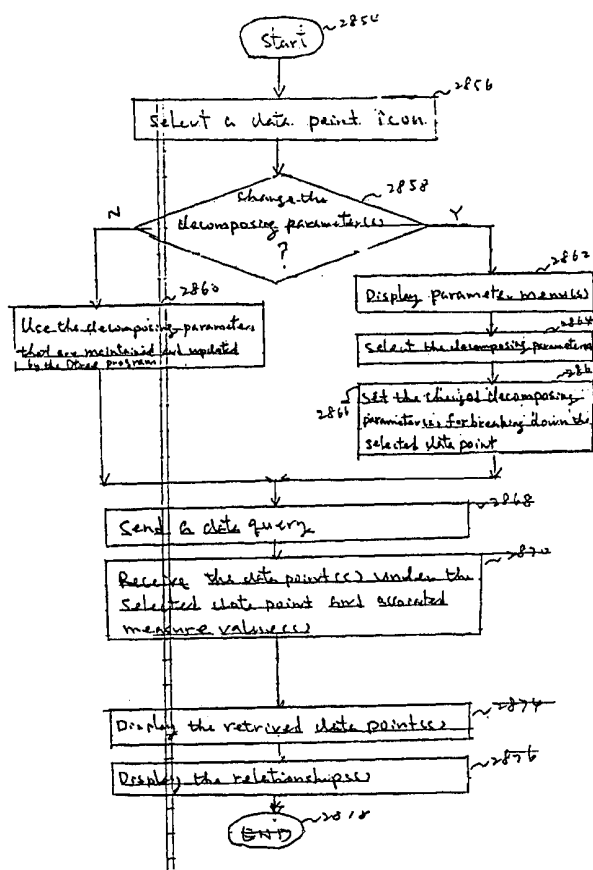 Start
2854
2856
Select a data point icon
Change the
2858
decomposing parameter(s)
?
N
Y
2860
Use the decomposing parameters
that are maintained and updated
by the Dtree program
2862
Display parameter menu(s)
2864
Select the decomposing parameters
286
2866
Set the changed decomposing
parameter(s) for breaking down the
selected data point
2868
Send a data query
2870
Receive the data point(s) under the
selected data point and associated
measure value(s)
2874
Display the retrived data point(s)
2876
Display the relationship(s)
END
2818